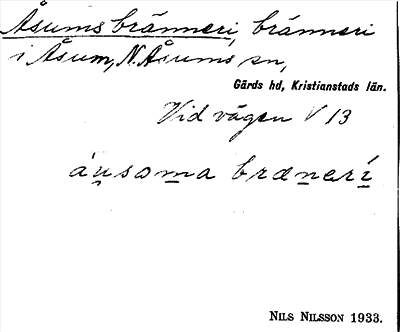 Åsums bränneri, bränneri
i Åsum, N. Åsums sn,
Gärds hd, Kristianstads län.
Vid vägen V 13
áu̱som̱a bræṉerí̱
NILS NILSSON 1933.